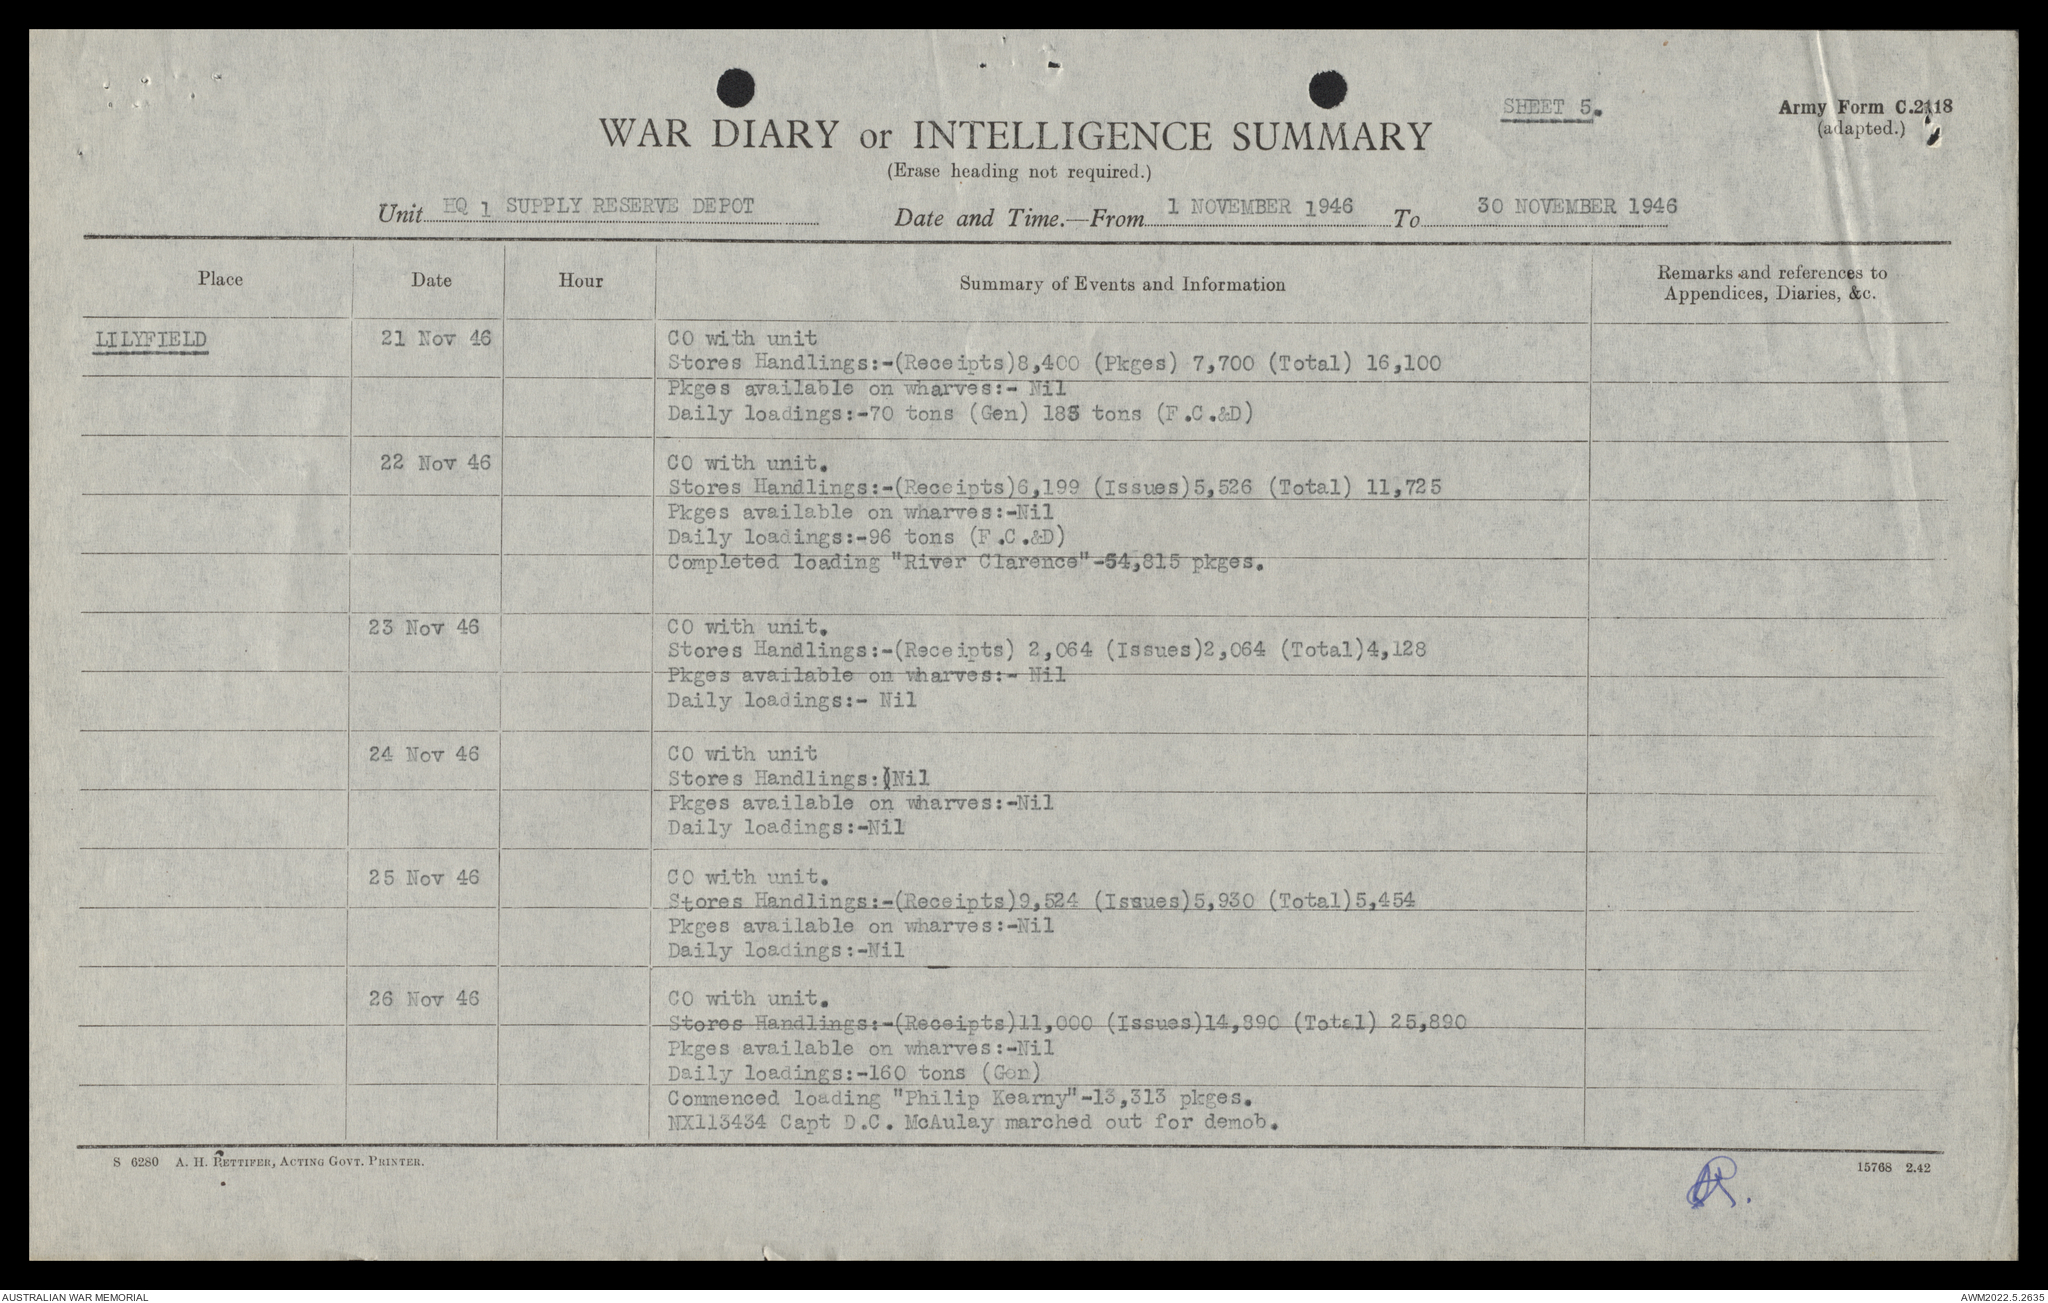 SHEET 5.
Army Form C.2118
(adapted.)
WAR DIARY or INTELLIGENCE SUMMARY
(Erase heading not required.)
Unit HQ 1 SUPPLY RESERVE DEPOT Date and Time.—From 1 NOVEMBER 1946 To 30 NOVEMBER 1946
Place Date Hour Summary of Events and Information Remarks and references to
Appendices, Diaries, &c.
LILYFIELD 21 Nov 46 CO with unit
Stores Handlings:-(Receipts)8,400 (Pkges) 7,700 (Total) 16,100
Pkges available on wharves:- Nil
Daily loadings:-70 tons (Gen) 183 tons (F.C.&D)
22 Nov 46 CO with unit.
Stores Handlings:-(Receipts)6,199 (Issues)5,526 (Total) 11,725
Pkges available on wharves:-Nil
Daily loadings:-96 tons (F.C.&D)
Completed loading "River Clarence"-54,815 pkges.
23 Nov 46 CO with unit.
Stores Handlings:-(Receipts) 2,064 (Issues)2,064 (Total)4,128
Pkges available on wharves:- Nil
Daily loadings:- Nil
24 Nov 46 CO with unit
Stores Handlings:(Nil
Pkges available on wharves:-Nil
Daily loadings:-Nil
25 Nov 46 CO with unit.
Stores Handlings:-(Receipts)9,524 (Issues)5,930 (Total)5,454
Pkges available on wharves:-Nil
Daily loadings:-Nil
26 Nov 46 CO with unit.
Stores Handlings:-(Receipts)11,000 (Issues)14,890 (Total) 25,890
Pkges available on wharves:-Nil
Daily loadings:-160 tons (Gen)
Commenced loading "Philip Kearny"-13,313 pkges.
NX113434 Capt D.C. McAulay marched out for demob.
S 6280 A. H. PETTIFER, ACTING GOVT. PRINTER.
15768 2.42
AUSTRALIAN WAR MEMORIAL
AWM2022.5.2635